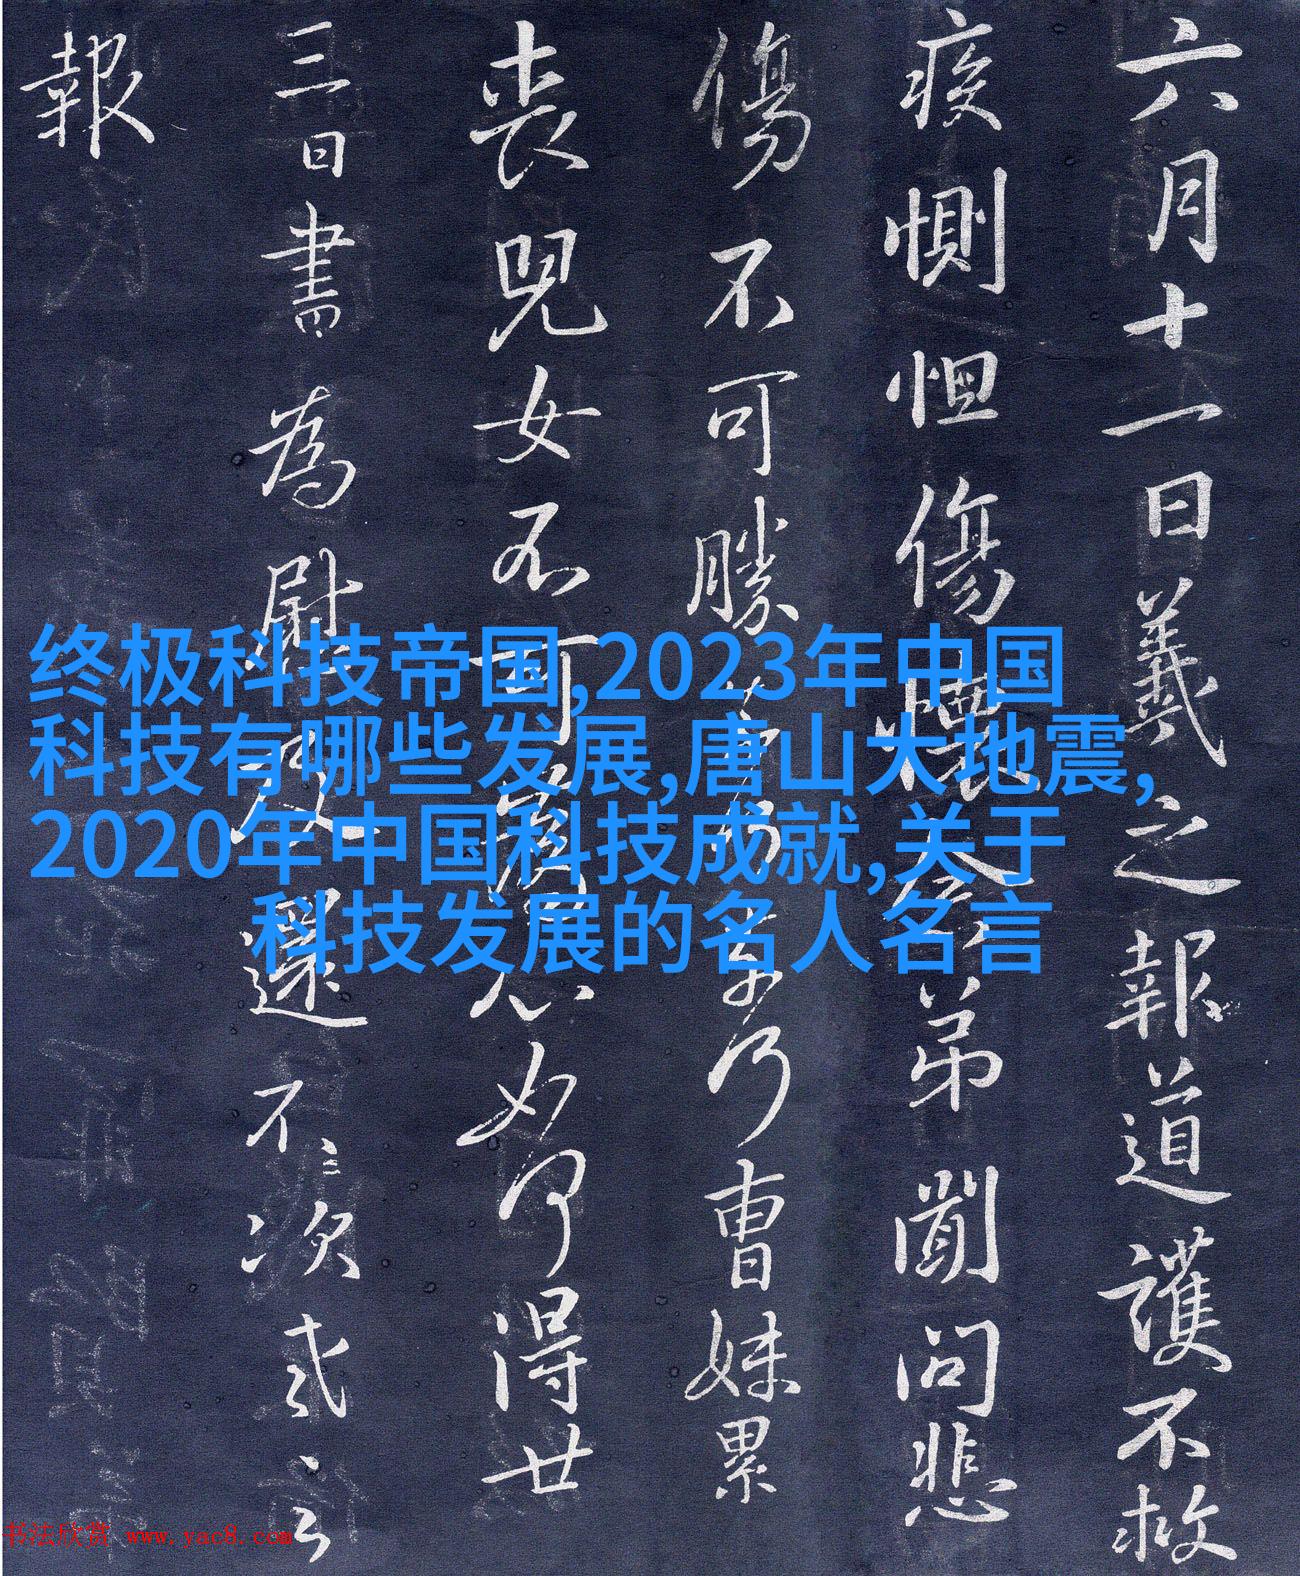 六月十一日羲之報道護不救
疾惻怛傷懷念弟聞問悲
傷不可勝奈何乃曹妹累
喪兒女不可為心如何得廿
三日書為慰及還不次
報
终极科技帝国,2023年中国
科技有哪些发展,唐山大地震,
2020年中国科技成就,关于
科技发展的名人名言
书法欣赏 www.yac8.com